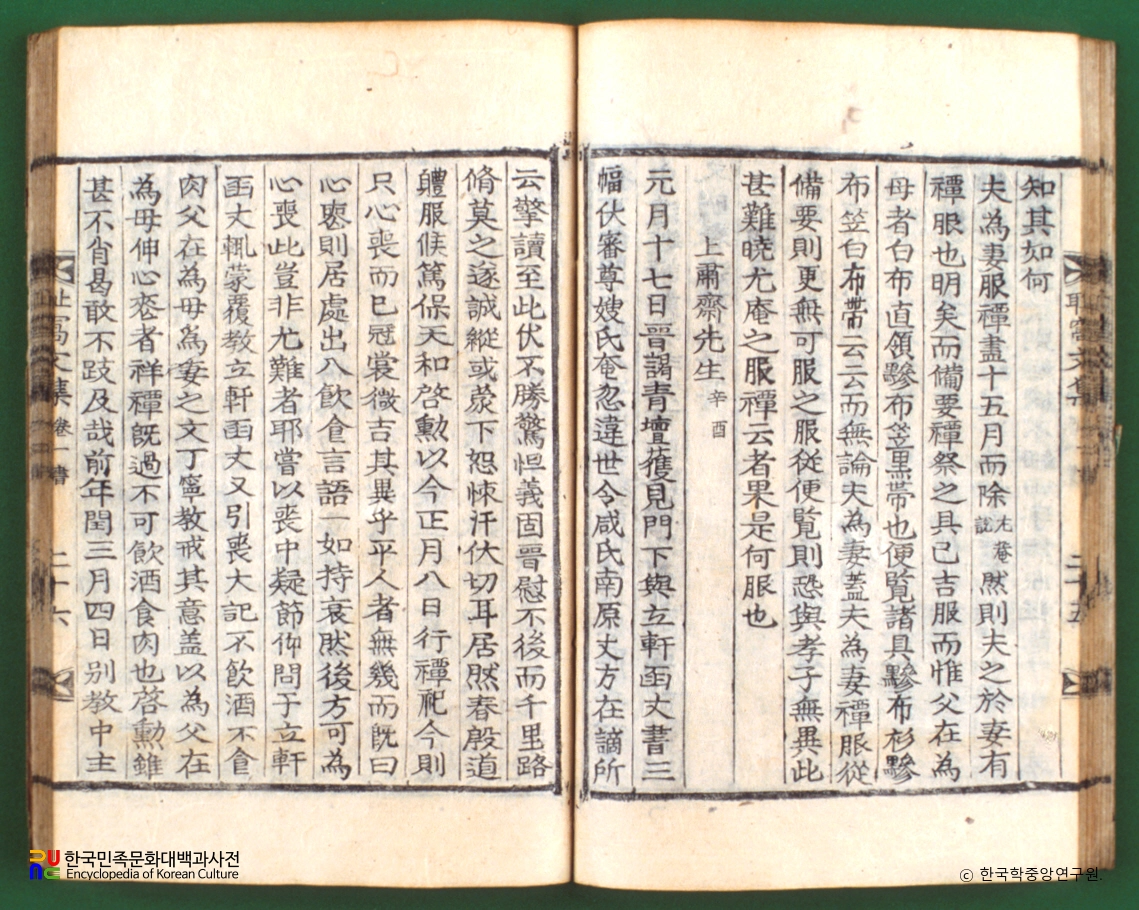 知其如何
夫為妻服禫盡十五月而除尤菴說然則夫之於妻有
禫服也明矣而備要禫祭之具已吉服而惟父在為
母者白布直領黲布笠黑帶也便覧諸具黲布衫黲
布笠白布帶云云而無論夫為妻蓋夫為妻禫服從
備要則更無可服之服從便覧則恐與孝子無異此
甚難曉尤庵之服禫云者果是何服也
上肅齋先生 辛酉
元月十七日晉謁青壇獲見門下與立軒函丈書三
幅伏審尊嫂氏奄忽違世令咸氏南原丈方在謫所
云擎讀至此伏不勝驚怛義固晉慰不後而千里路
脩莫之遂誠縱或蒙下恕悚汗伏切耳居然春殷道
軆服候篤保天和啓勳以今正月八日行禫祀今則
只心喪而已冠裳微吉其異乎平人者無幾而旣曰
心喪則居處出入飲食言語一如持衰然後方可為
心喪此豈非尤難者耶嘗以喪中疑節仰問于立軒
函丈輒蒙覆教立軒函丈又引喪大記不飲酒不食
肉父在為母為妻之文丁寧教戒其意盖以為父在
為母伸心喪者祥禫旣過不可飲酒食肉也啓勳雖
甚不肖曷敢不跂及哉前年閏三月四日别教中主
止窩文集 卷一 書 二十六
한국민족문화대백과사전
Encyclopedia of Korean Culture
ⓒ 한국학중앙연구원.